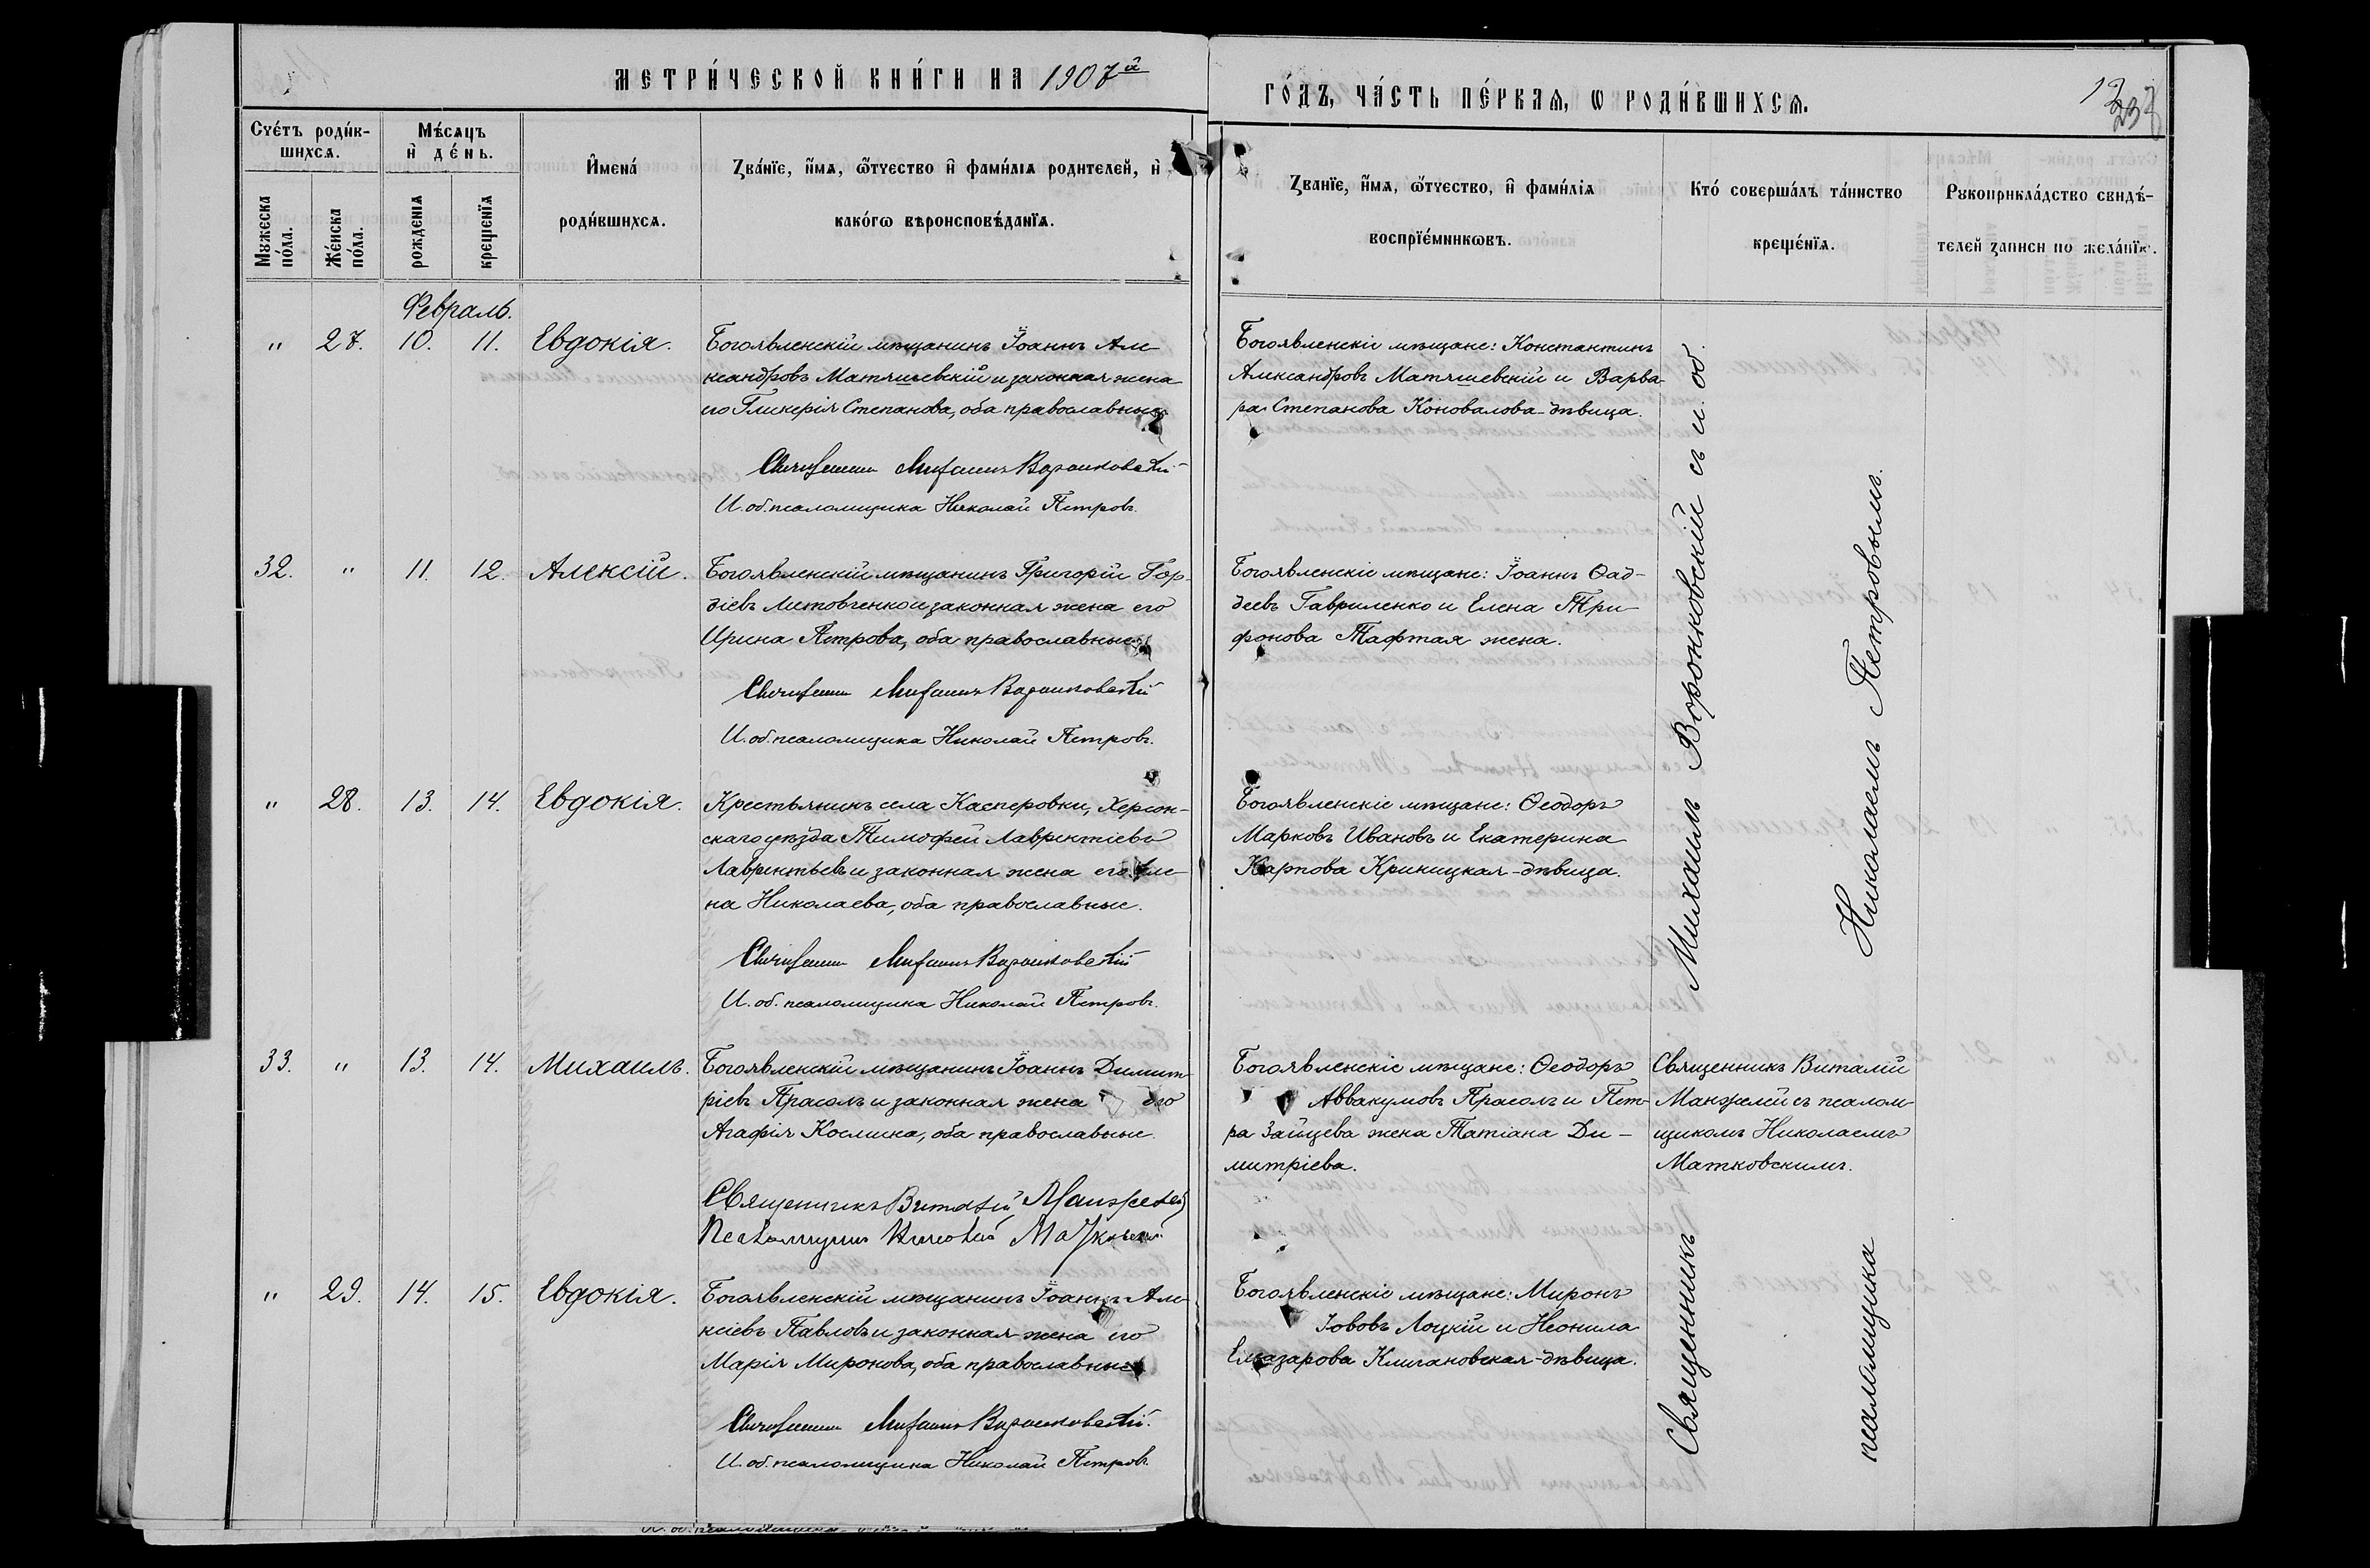 МЕТРИ́ЧЕСКОЙ КНИ́ГИ НА 1907й
ГО́ДЪ, ЧА́СТЬ ПЕ́РВАЯ, Ѡ РОДИ́ВШИХСѦ.
Счéтъ роди́в-
шихсѧ.
Мѣ́сѧцъ
и҆ де́нь.
Мꙋжеска
по́ла.
Же́нска
по́ла.
рожденїѧ
крещенїѧ
И҆мена́
роди́вшихсѧ.
Зва́нїе, и҆́мѧ, ѻ҆́тчество и҆ фами́лїѧ родителей, и҆
како́гѡ вѣроисповѣ́данїѧ.
Зва́нїе, и҆́мѧ, ѻ҆́тчество, и҆ фами́лїѧ
воспрїе́мникѡвъ.
Кто́ соверша́лъ та́инство
креще́нїѧ.
Рꙋкоприкла́дство свидѣ́-
телей записи по жела́нїю.
Февраль.
" 27. 10. 11. Евдокія.
Богоявленскій мѣщанинъ Іоаннъ Але-
ксандровъ Матяшевскій и законная жена
его Гликерія Степанова, оба православные
Священникъ Михаилъ Воронковскій
И. об. псаломщика Николай Петровъ.
Богоявленскіе мѣщане: Константинъ
Александровъ Матяшевскій и Варва-
ра Степанова Коновалова-дѣвица.
32. " 11. 12. Алексій.
Богоявленскій мѣщанинъ Григорій Гор-
діевъ Литовченко и законная жена его
Ирина Петрова, оба православные
Священникъ Михаилъ Воронковскій
И. об. псаломщика Николай Петровъ.
Богоявленскіе мѣщане: Іоаннъ Ѳад-
деевъ Гавриленко и Елена Три-
фонова Тафтая жена.
" 28. 13. 14. Евдокія.
Крестьянинъ села Касперовки, Херсон-
скаго уѣзда Тимофей Лаврентіевъ
Лаврентьевъ и законная жена его Еле-
на Николаева, оба православные.
Священникъ Михаилъ Воронковскій
И. об. псаломщика Николай Петровъ.
Богоявленскіе мѣщане: Ѳеодоръ
Марковъ Ивановъ и Екатерина
Карпова Криницкая-дѣвица.
33. " 13. 14. Михаилъ.
Богоявленскій мѣщанинъ Іоаннъ Димит-
ріевъ Прасолъ и законная жена его
Агафія Космина, оба православные.
Священникъ Виталій Манжелей
Псаломщикъ Николай Матковскій
Богоявленскіе мѣщане: Ѳеодоръ
Аввакумовъ Прасолъ и Пет-
ра Зайцева жена Татіана Ди-
митріева.
Священникъ Виталій
Манжелей съ псалом-
щикомъ Николаемъ
Матковскимъ.
" 29. 14. 15. Евдокія.
Богоявленскій мѣщанинъ Іоаннъ Але-
ксіевъ Павловъ и законная жена его
Марія Миронова, оба православные
Священникъ Михаилъ Воронковскій.
И. об. псаломщика Николай Петровъ.
Богоявленскіе мѣщане: Миронъ
Іововъ Лоцкій и Неонила
Елеазарова Климановская-дѣвица.
Священникъ Михаилъ Воронковскій съ и. об.
псаломщика Николаемъ Петровымъ.